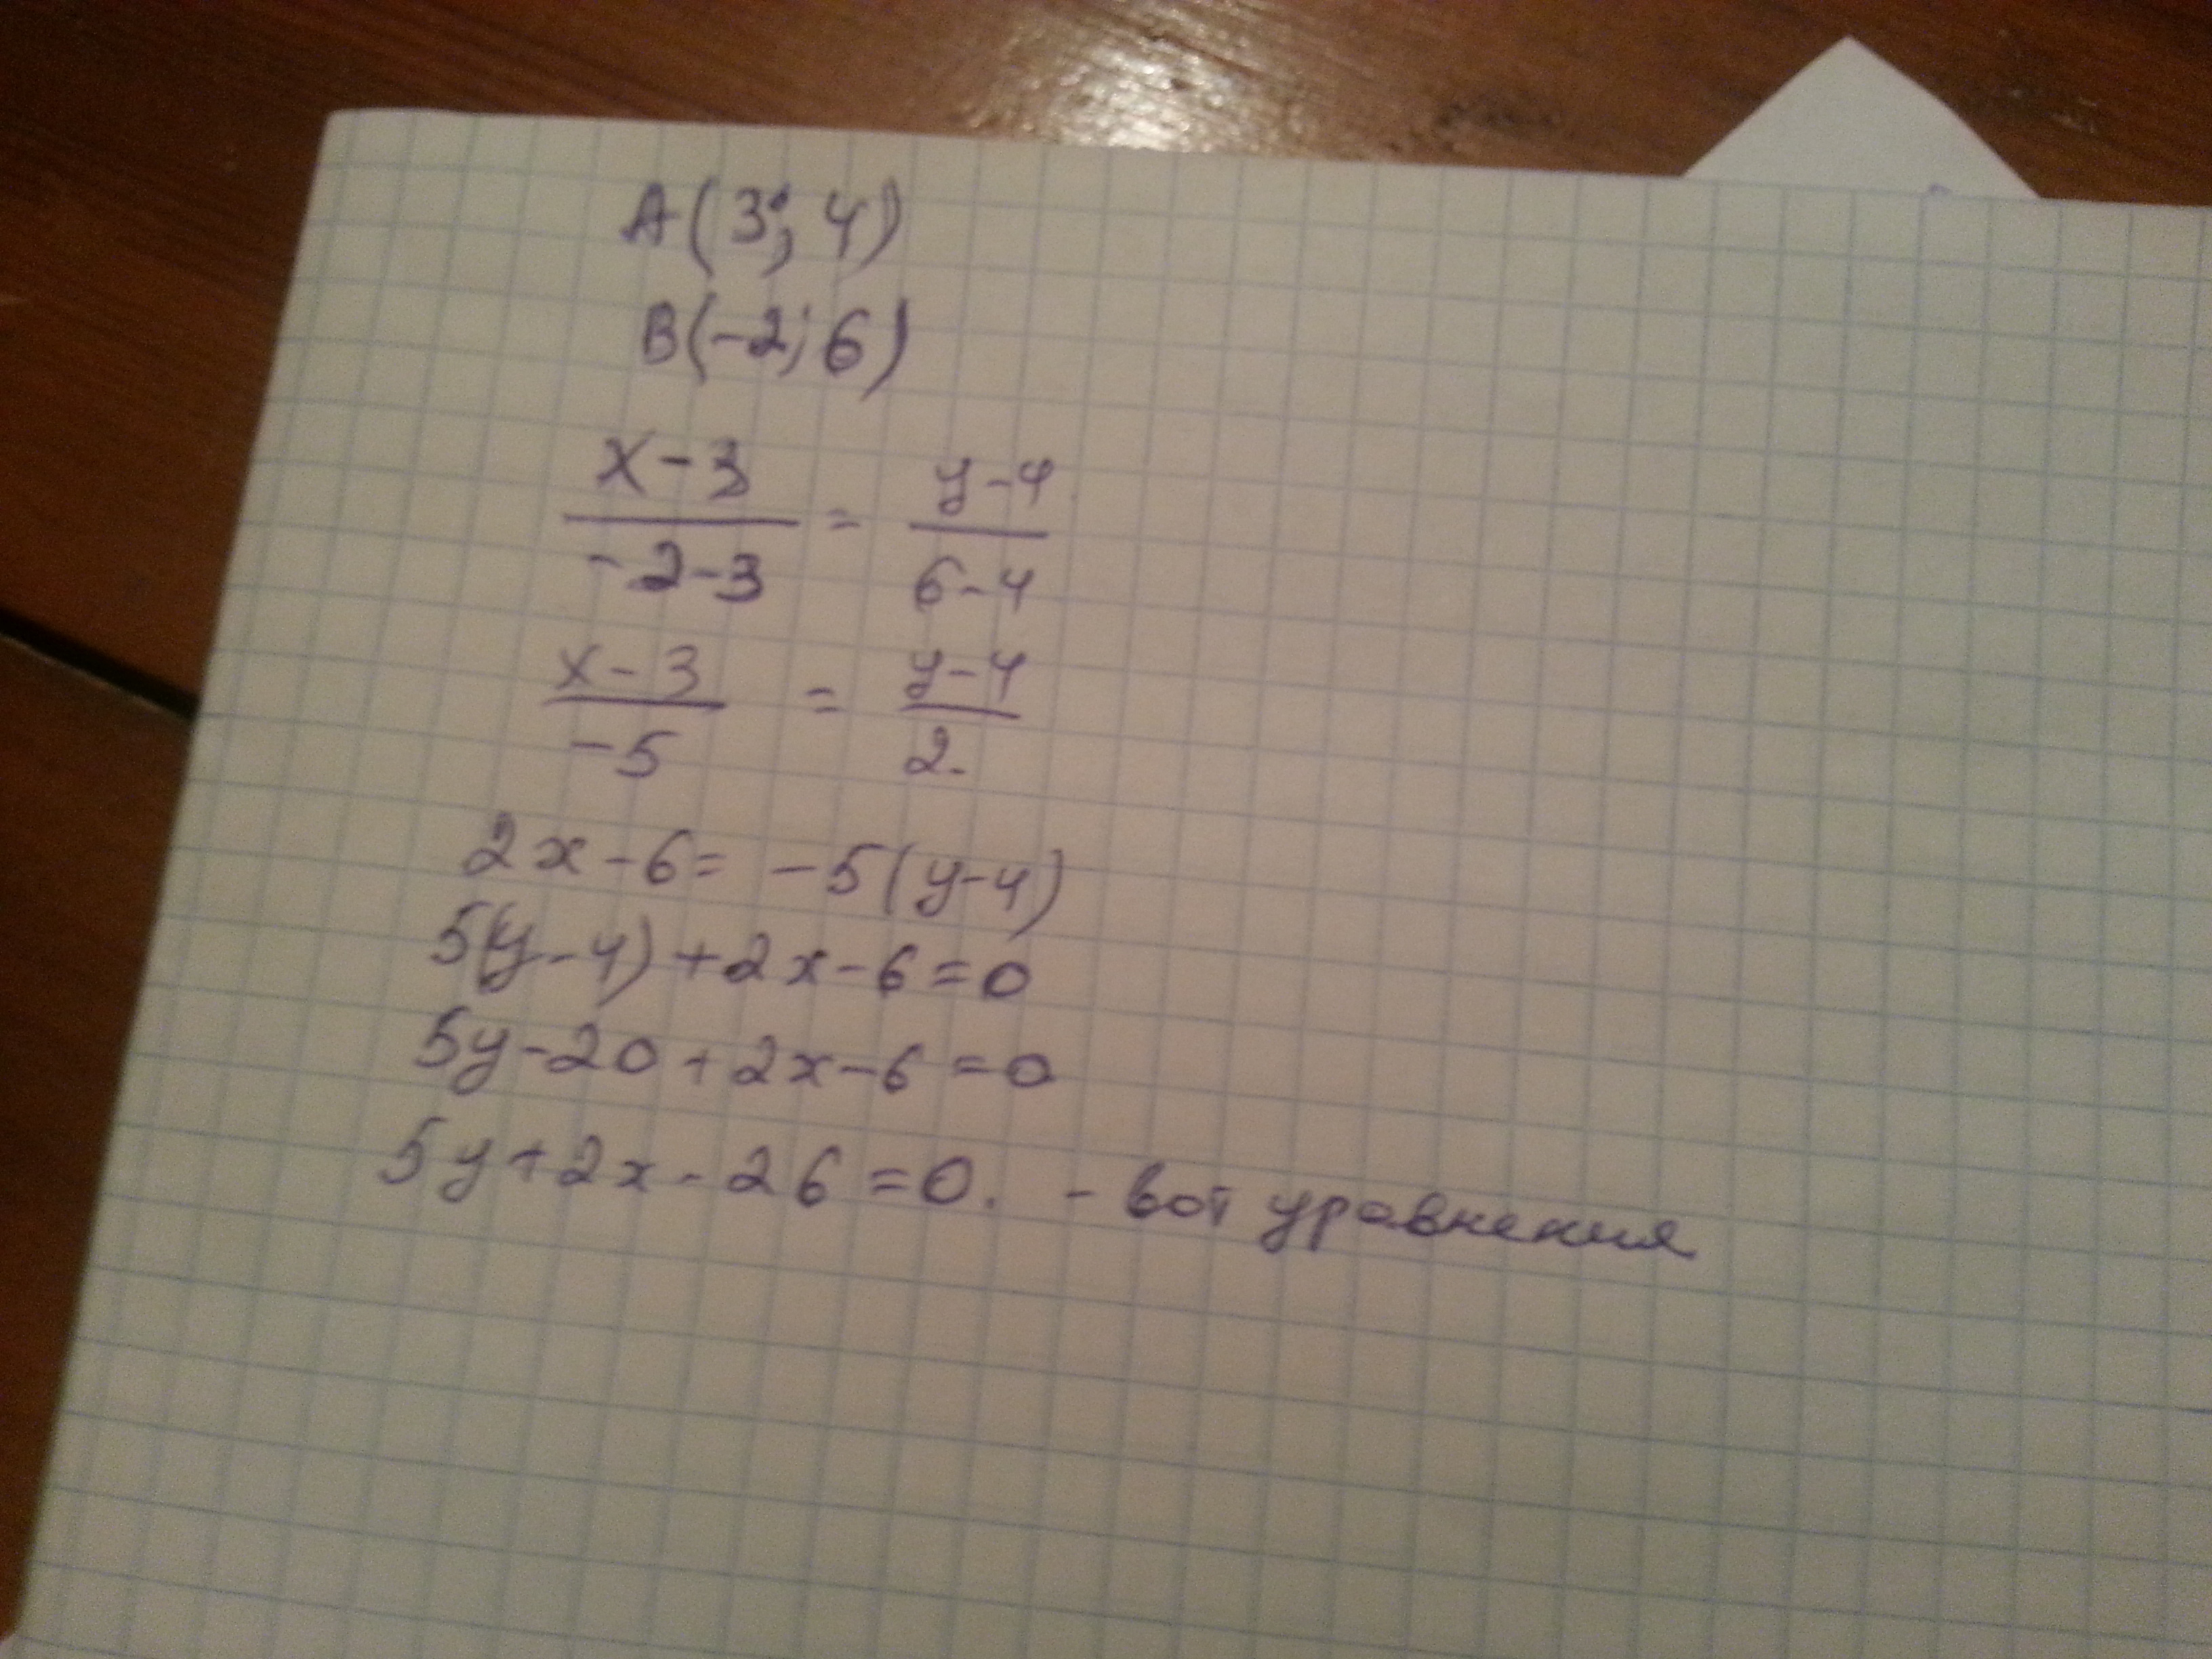 A(3; 4)
B(-2; 6)
x-3 / -2-3 = y-4 / 6-4
x-3 / -5 = y-4 / 2.
2x-6= -5(y-4)
5(y-4)+2x-6=0
5y-20+2x-6=0
5y+2x-26=0. - вот уравнения